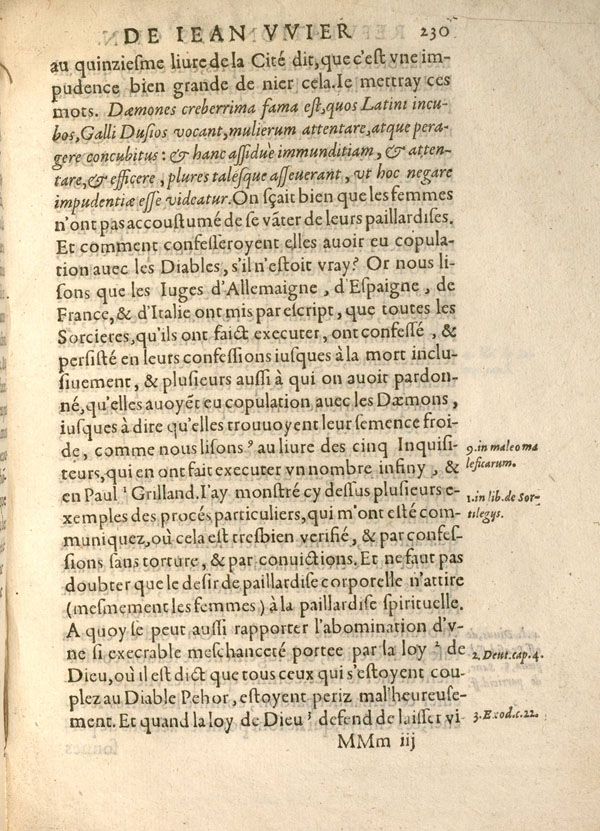 DE IEAN VVIER 230
au quinziesme liure de la Cité dit, que c'est vne im-
pudence bien grande de nier cela. Ie mettray ces
mots. Dæmones creberrima fama est, quos Latini incu-
bos, Galli Dusios vocant, mulierum attentare, atque pera-
gere concubitus: & hanc assiduè immunditiam, & atten-
tare, & efficere, plures talésque asseuerant, vt hoc negare
impudentiæ esse videatur. On sçait bien que les femmes
n'ont pas accoustumé de se vãter de leurs paillardises.
Et comment confesseroyent elles auoir eu copula-
tion auec les Diables, s'il n'estoit vray? Or nous li-
sons que les Iuges d'Allemaigne, d'Espaigne, de
France, & d'Italie ont mis par escript, que toutes les
Sorcieres, qu'ils ont faict executer, ont confessé, &
persisté en leurs confessions iusques à la mort inclu-
siuement, & plusieurs aussi à qui on auoit pardon-
né, qu'elles auoyẽt eu copulation auec les Dæmons,
iusques à dire qu'elles trouuoyent leur semence froi-
de, comme nous lisons 9 au liure des cinq Inquisi-
teurs, qui en ont fait executer vn nombre infiny, &
en Paul 1 Grilland. I'ay monstré cy dessus plusieurs e-
xemples des procés particuliers, qui m'ont esté com-
muniquez, où cela est tresbien verifié, & par confes-
sions sans torture, & par conuictions. Et ne faut pas
doubter que le desir de paillardise corporelle n'attire
(mesmement les femmes) à la paillardise spirituelle.
A quoy se peut aussi rapporter l'abomination d'v-
ne si execrable meschanceté portee par la loy 2 de
Dieu, où il est dict que tous ceux qui s'estoyent cou-
plez au Diable Pehor, estoyent periz mal'heureuse-
ment. Et quand la loy de Dieu 3 defend de laisser vi-
MMm iij
9. in maleo ma
leficarum.
1. in lib. de Sor-
tilegijs.
2. Deut. cap. 4.
3. Exod. c. 22.